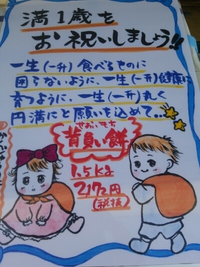 満1歳を
お祝いしましょう!!
一生(一升)食べるものに
困らないように、一生(一升)健康に
育つように、一生(一升)丸く
円満にと願いを込めて…
せおいもち
背負い餅
1.5kg
2172円
(税抜)